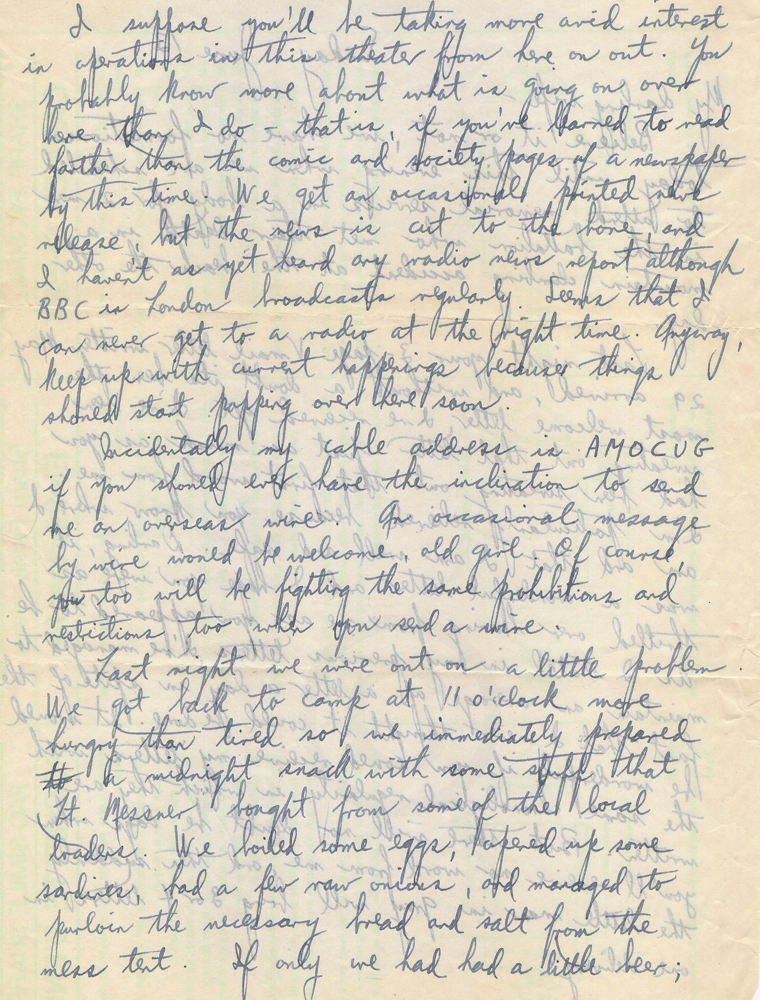 I suppose you'll be taking more avid interest
in operations in this theater from here on out. You
probably know more about what is going on over
here than I do - that is, if you've learned to read
farther than the comic and society pages of a newspaper
by this time. We get an occasional printed news
release, but the news is cut to the bone, and
I haven't as yet heard any radio news report although
BBC in London broadcasts regularly. Seems that I
can never get to a radio at the right time. Anyway,
keep up with current happenings because things
should start popping over here soon.
Incidentally my cable address is AMOCUG
if you should ever have the inclination to send
me an overseas wire. An occasional message
by wire would be welcome, old girl. Of course,
you too will be fighting the same prohibitions and
restrictions too when you send a wire.
Last night we were out on a little problem.
We got back to camp at 11 o'clock more
hungry than tired so we immediately prepared
a midnight snack with some stuff that
Lt. Messner bought from some of the local
traders. We boiled some eggs, opened up some
sardines, had a few raw onions, and managed to
purloin the necessary bread and salt from the
mess tent. If only we had had a little beer;